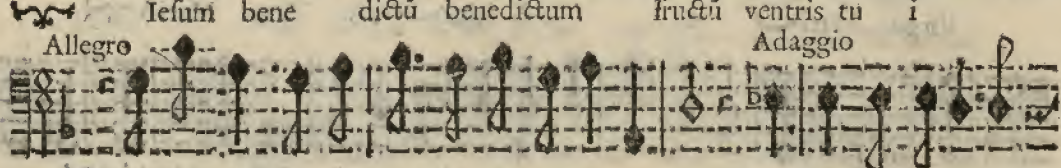 Iesum bene dictū benedictum fructū ventris tu i
Allegro Adaggio